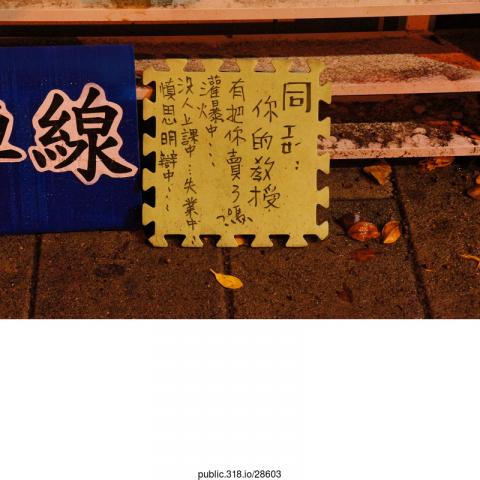 線
同
你的教授
有把你賣了嗎?
灌爆中...
沒人上課中...失業中...
慎思明辯中...
public.318.io/28603